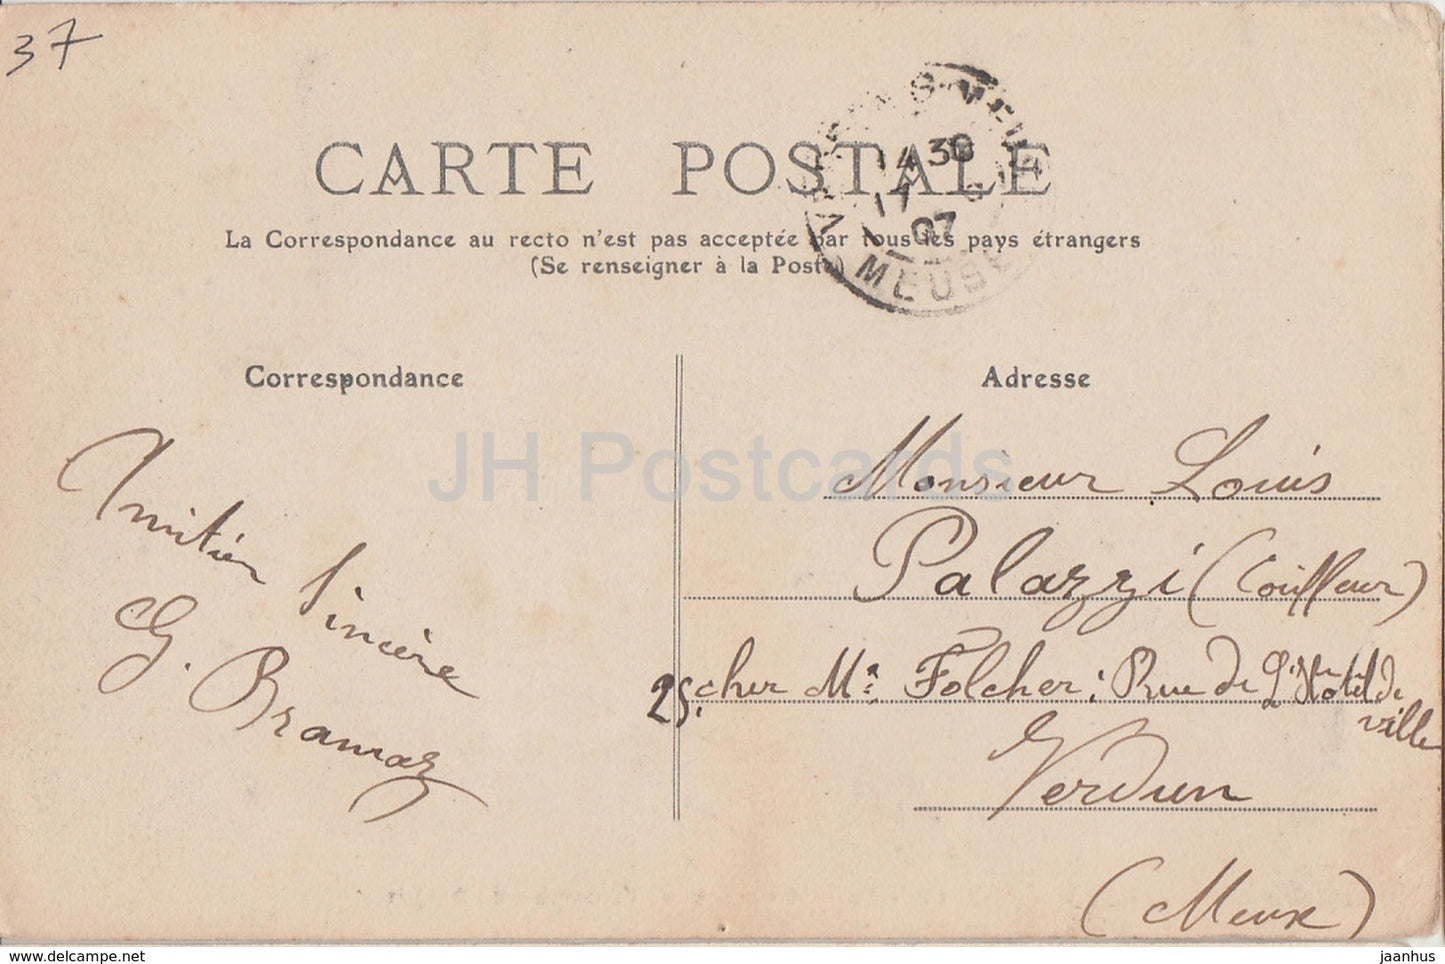 37
CARTE POSTALE
La Correspondance au recto n'est pas acceptée par tous les pays étrangers
(Se renseigner à la Poste)
14 30
17 6
07
MEUSE
Correspondance
Amitié Sincère
G. Bramaz
Adresse
Monsieur Louis
Palazzi (Coiffeur)
25. cher Mr: Folcher: Rue de L'Hotel de
ville
Verdun
(Meuse)
JH Postcards
delcampe.net
jaanhus